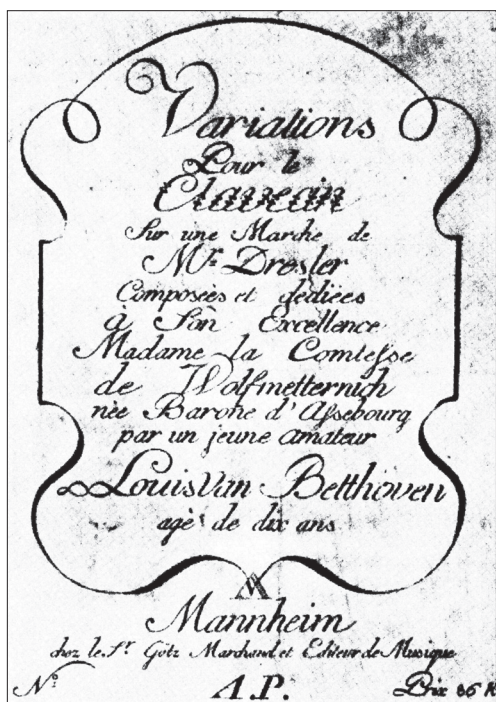 Variations
Pour le
Clavecin
Sur une Marche de
Mr. Dresler
Composées et dediées
à Son Excellence
Madame la Comtesse
de Wolfmetternich
née Barone d'Assebourg
par un jeune amateur
Louis van Betthoven
agè de dix ans
Mannheim
chez le Sr. Götz Marchand et Editeur de Musique
No. A.P. Prix